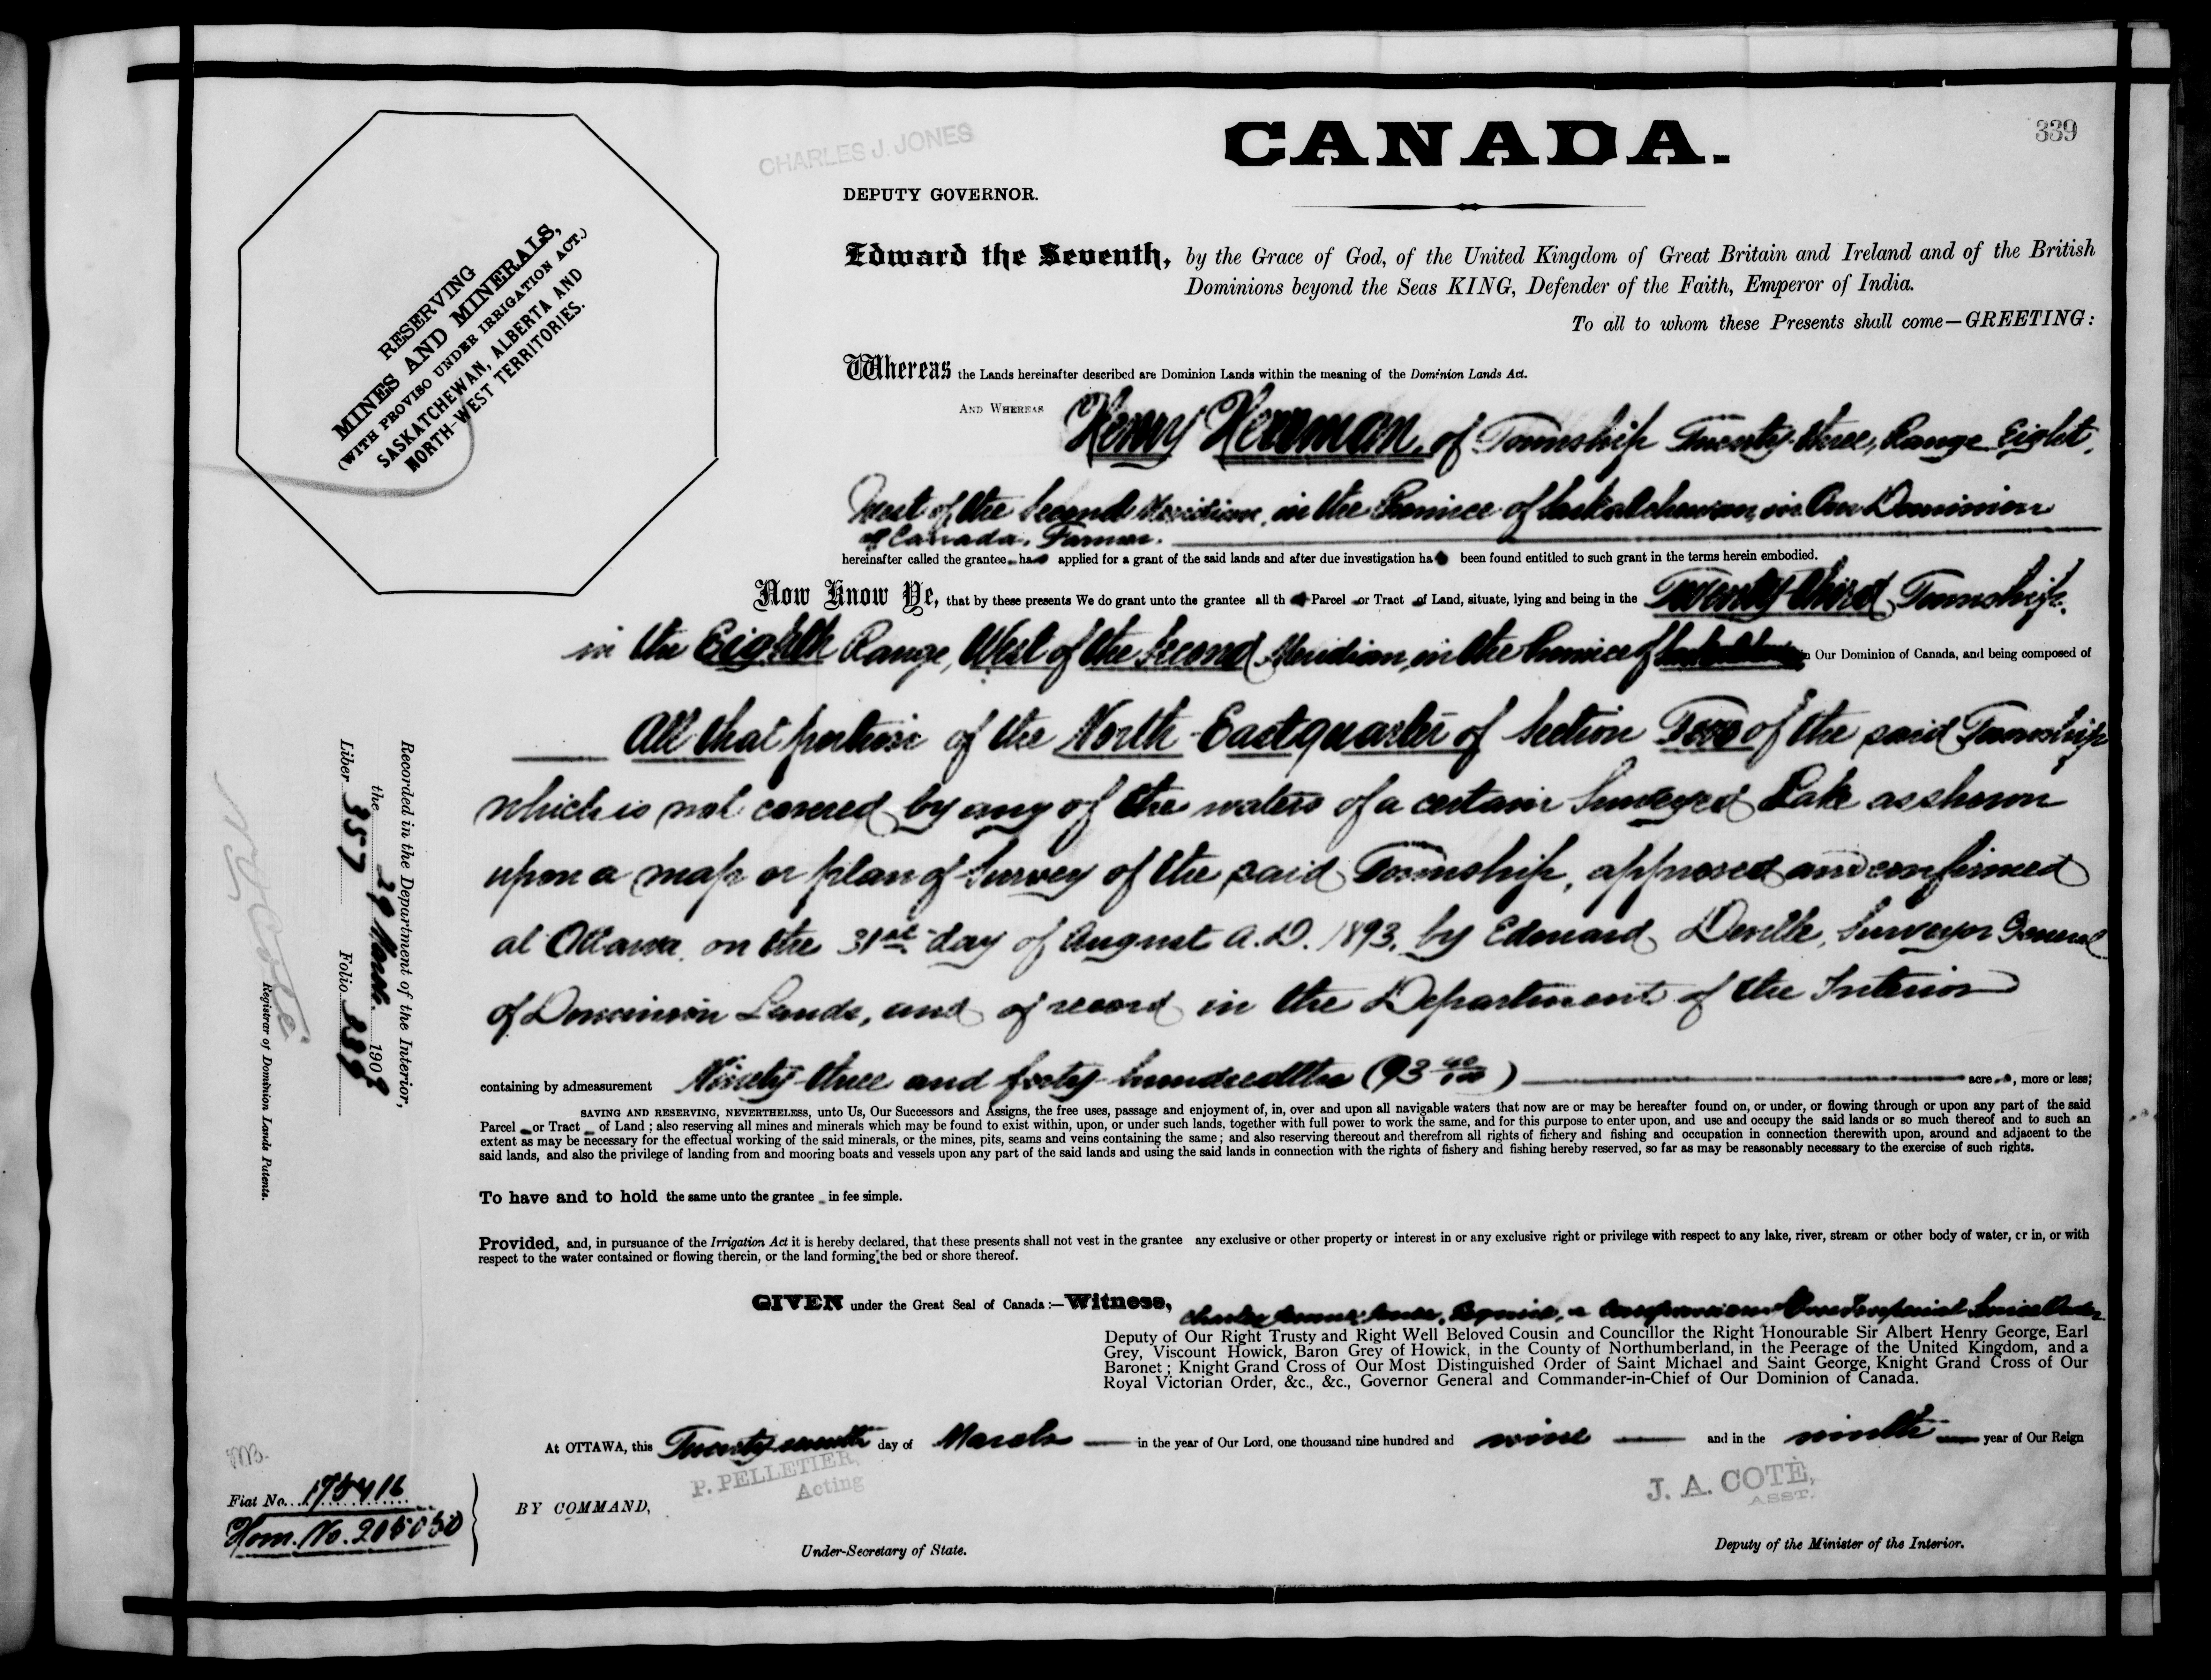 CANADA.
339
CHARLES J. JONES
DEPUTY GOVERNOR.
RESERVING
MINES AND MINERALS,
(WITH PROVISO UNDER IRRIGATION ACT.)
SASKATCHEWAN, ALBERTA AND
NORTH-WEST TERRITORIES.
Edward the Seventh, by the Grace of God, of the United Kingdom of Great Britain and Ireland and of the British
Dominions beyond the Seas KING, Defender of the Faith, Emperor of India.
To all to whom these Presents shall come—GREETING:
Whereas the Lands hereinafter described are Dominion Lands within the meaning of the Dominion Lands Act.
AND WHEREAS Henry Herrman, of Township Twenty-three, Range Eight,
West of the Second Meridian, in the Province of Saskatchewan, in Our Dominion
of Canada, Farmer.
hereinafter called the grantee has applied for a grant of the said lands and after due investigation ha been found entitled to such grant in the terms herein embodied.
Now Know Ye, that by these presents We do grant unto the grantee all th Parcel or Tract of Land, situate, lying and being in the Twenty-third Township,
in the Eighth Range, West of the Second Meridian, in the Province of Saskatchewan in Our Dominion of Canada, and being composed of
All that portion of the North East quarter of Section Two of the said Township
which is not covered by any of the waters of a certain Surveyed Lake as shown
upon a map or plan of Survey of the said Township, approved and confirmed
at Ottawa, on the 31st day of August A.D. 1893, by Edouard Deville, Surveyor General
of Dominion Lands, and of record in the Department of the Interior
containing by admeasurement Ninety-three and forty hundredths (93 40/100) acres, more or less;
SAVING AND RESERVING, NEVERTHELESS, unto Us, Our Successors and Assigns, the free uses, passage and enjoyment of, in, over and upon all navigable waters that now are or may be hereafter found on, or under, or flowing through or upon any part of the said
Parcel or Tract of Land; also reserving all mines and minerals which may be found to exist within, upon, or under such lands, together with full power to work the same, and for this purpose to enter upon, and use and occupy the said lands or so much thereof and to such an
extent as may be necessary for the effectual working of the said minerals, or the mines, pits, seams and veins containing the same; and also reserving thereout and therefrom all rights of fishery and fishing and occupation in connection therewith upon, around and adjacent to the
said lands, and also the privilege of landing from and mooring boats and vessels upon any part of the said lands and using the said lands in connection with the rights of fishery and fishing hereby reserved, so far as may be reasonably necessary to the exercise of such rights.
To have and to hold the same unto the grantee in fee simple.
Provided, and, in pursuance of the Irrigation Act it is hereby declared, that these presents shall not vest in the grantee any exclusive or other property or interest in or any exclusive right or privilege with respect to any lake, river, stream or other body of water, or in, or with
respect to the water contained or flowing therein, or the land forming the bed or shore thereof.
GIVEN under the Great Seal of Canada:—Witness, Charles Jones, Esquire, a Companion of Our Imperial Service Order
Deputy of Our Right Trusty and Right Well Beloved Cousin and Councillor the Right Honourable Sir Albert Henry George, Earl
Grey, Viscount Howick, Baron Grey of Howick, in the County of Northumberland, in the Peerage of the United Kingdom, and a
Baronet; Knight Grand Cross of Our Most Distinguished Order of Saint Michael and Saint George, Knight Grand Cross of Our
Royal Victorian Order, &c., &c., Governor General and Commander-in-Chief of Our Dominion of Canada.
At OTTAWA, this Twenty seventh day of March in the year of Our Lord, one thousand nine hundred and nine and in the ninth year of Our Reign
P. PELLETIER,
Acting
J. A. COTÉ,
ASST.
BY COMMAND,
Under-Secretary of State.
Deputy of the Minister of the Interior.
Recorded in the Department of the Interior,
the 29 March 1909
Liber 357 Folio 339
N. O. Coté
Registrar of Dominion Lands Patents.
Fiat No. 195416
Hom. No. 205050